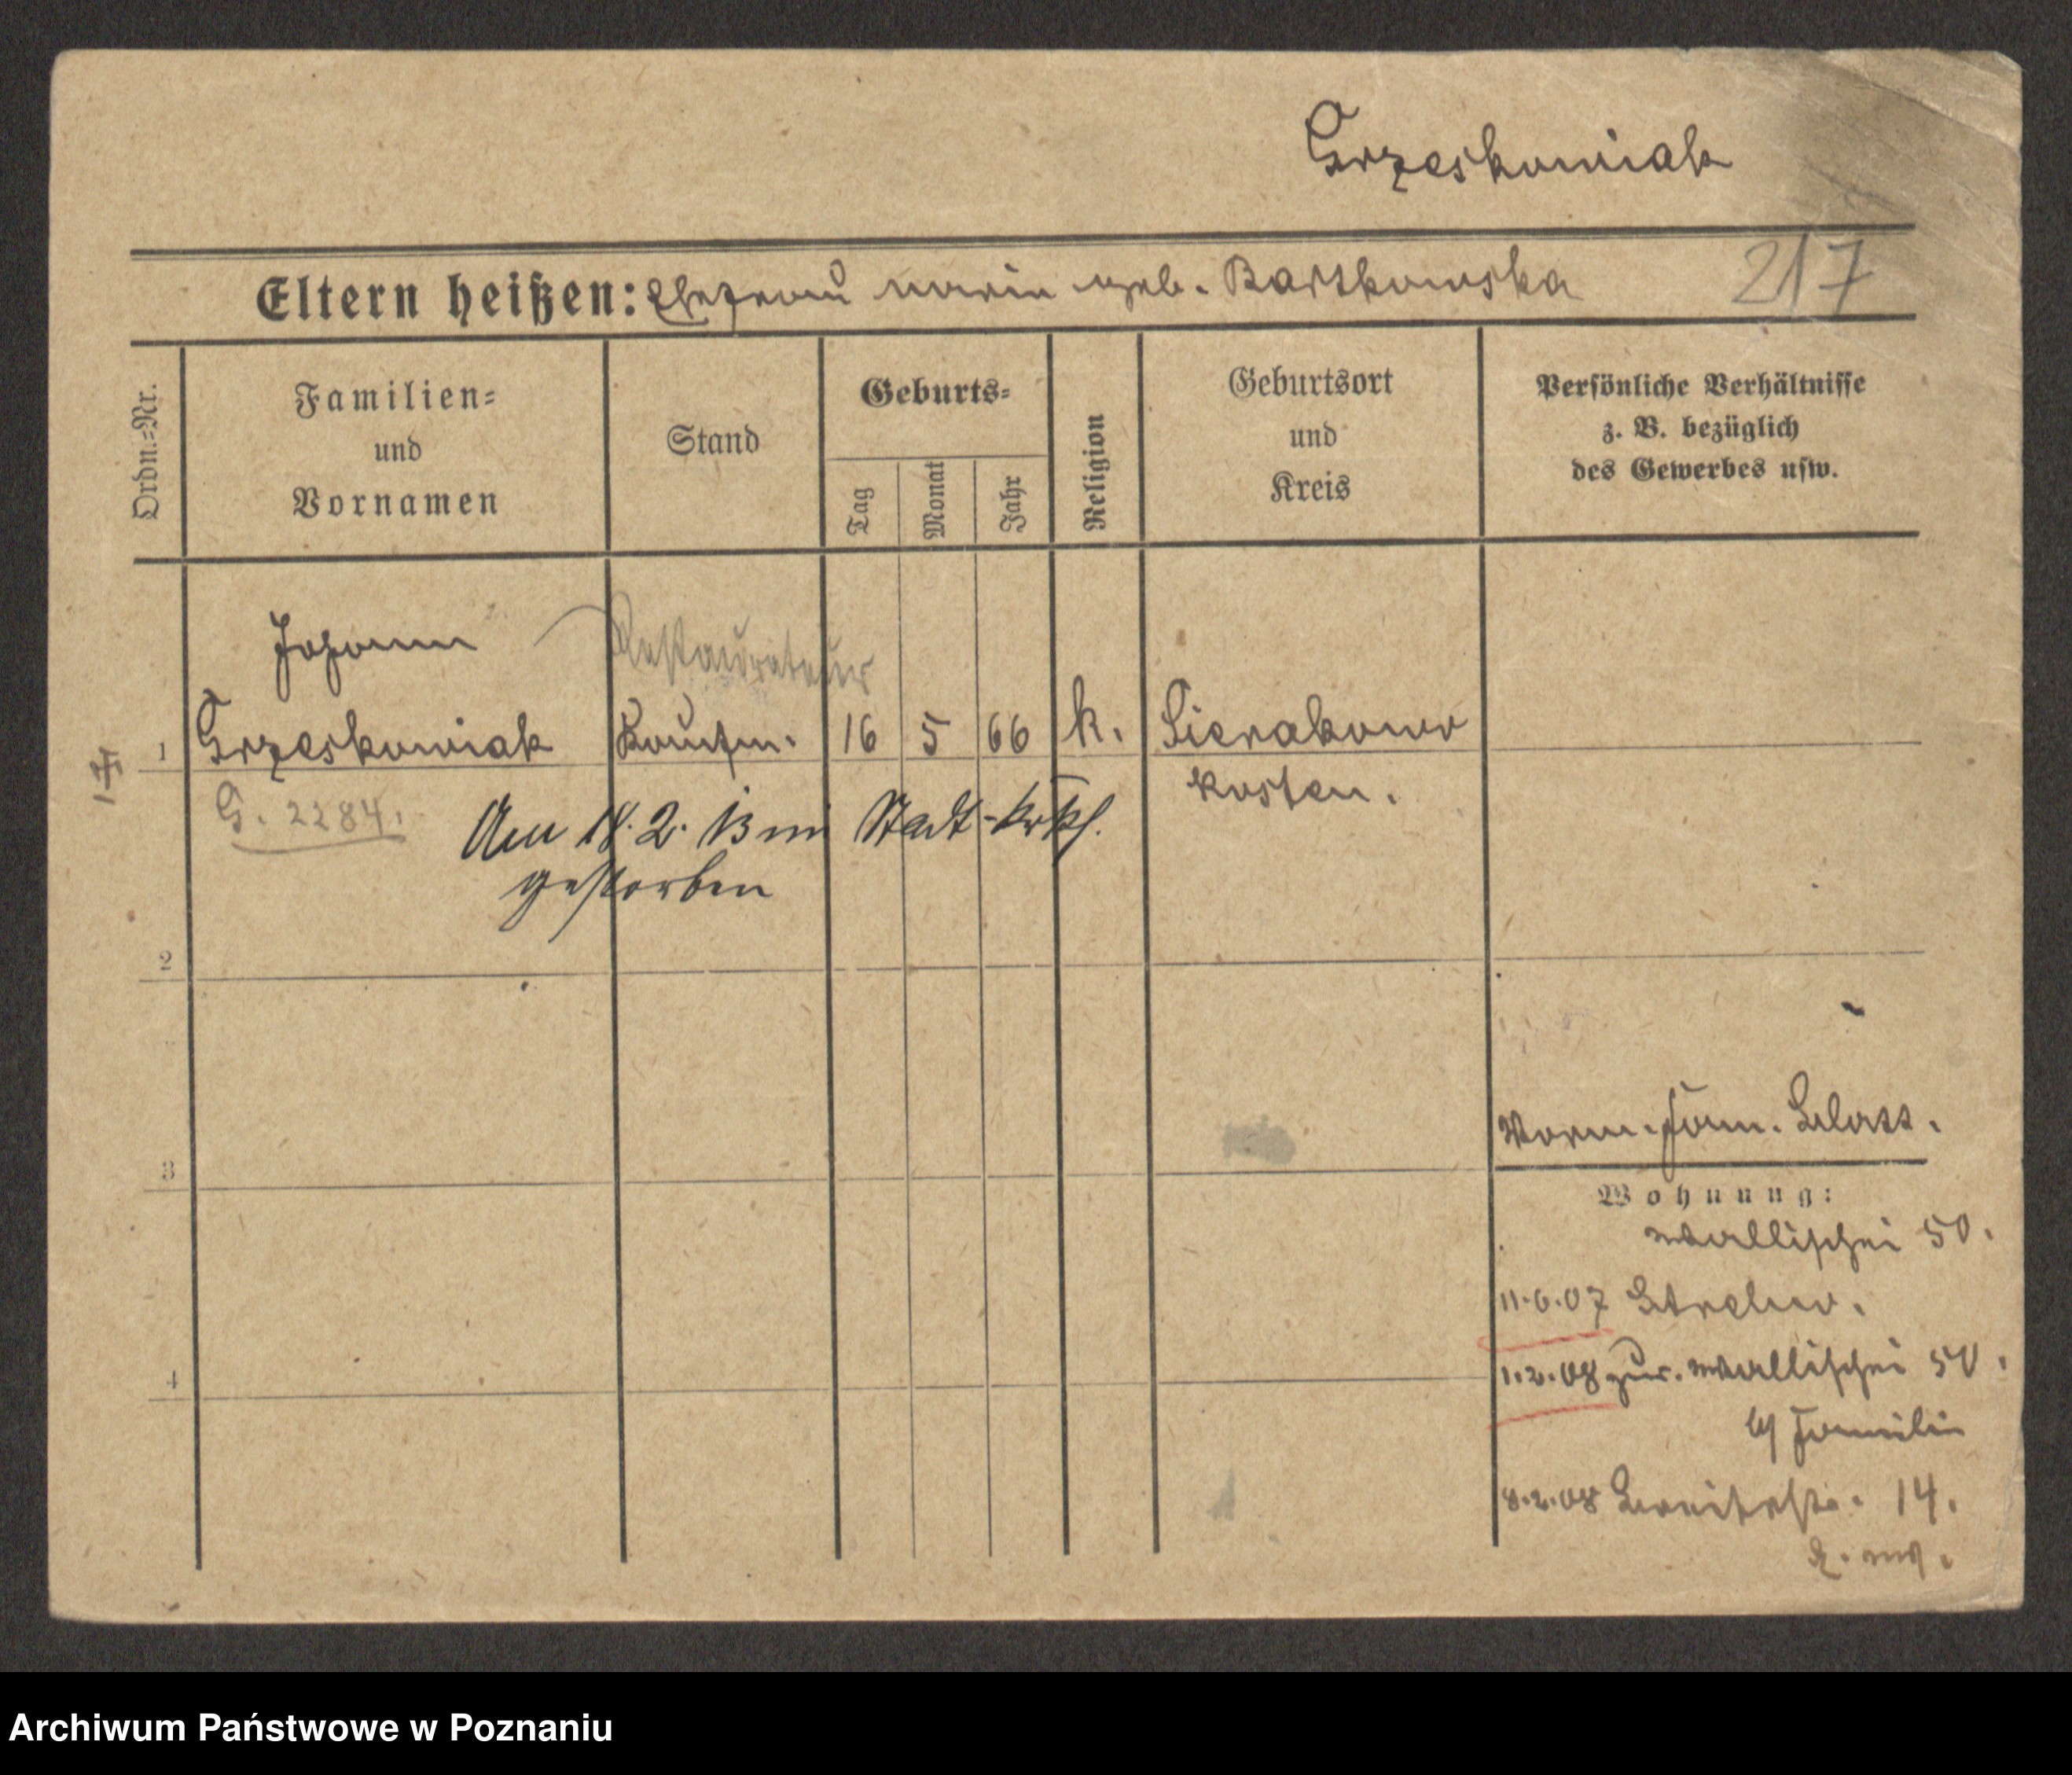 Grzeskowiak
Eltern heißen: Ehefrau Marie geb. Bartkowska
217
Ordn.=Nr.
Familien=
und
Vornamen
Stand
Geburts=
Tag
Monat
Jahr
Religion
Geburtsort
und
Kreis
Persönliche Verhältnisse
z. B. bezüglich
des Gewerbes usw.
Johann
Restaurateur
1 Grzeskowiak Kaufm. 16 5 66 k. Sierakowo
Kosten.
G. 2284.
Am 18. 2. 13 im Stadt-Krkh.
gestorben
2
3
4
Wohnung:
Wallischei 50.
11.6.07
1.2.08 zur. Wallischei 50.
Familie
8.2.08 Breitestr. 14.
Archiwum Państwowe w Poznaniu